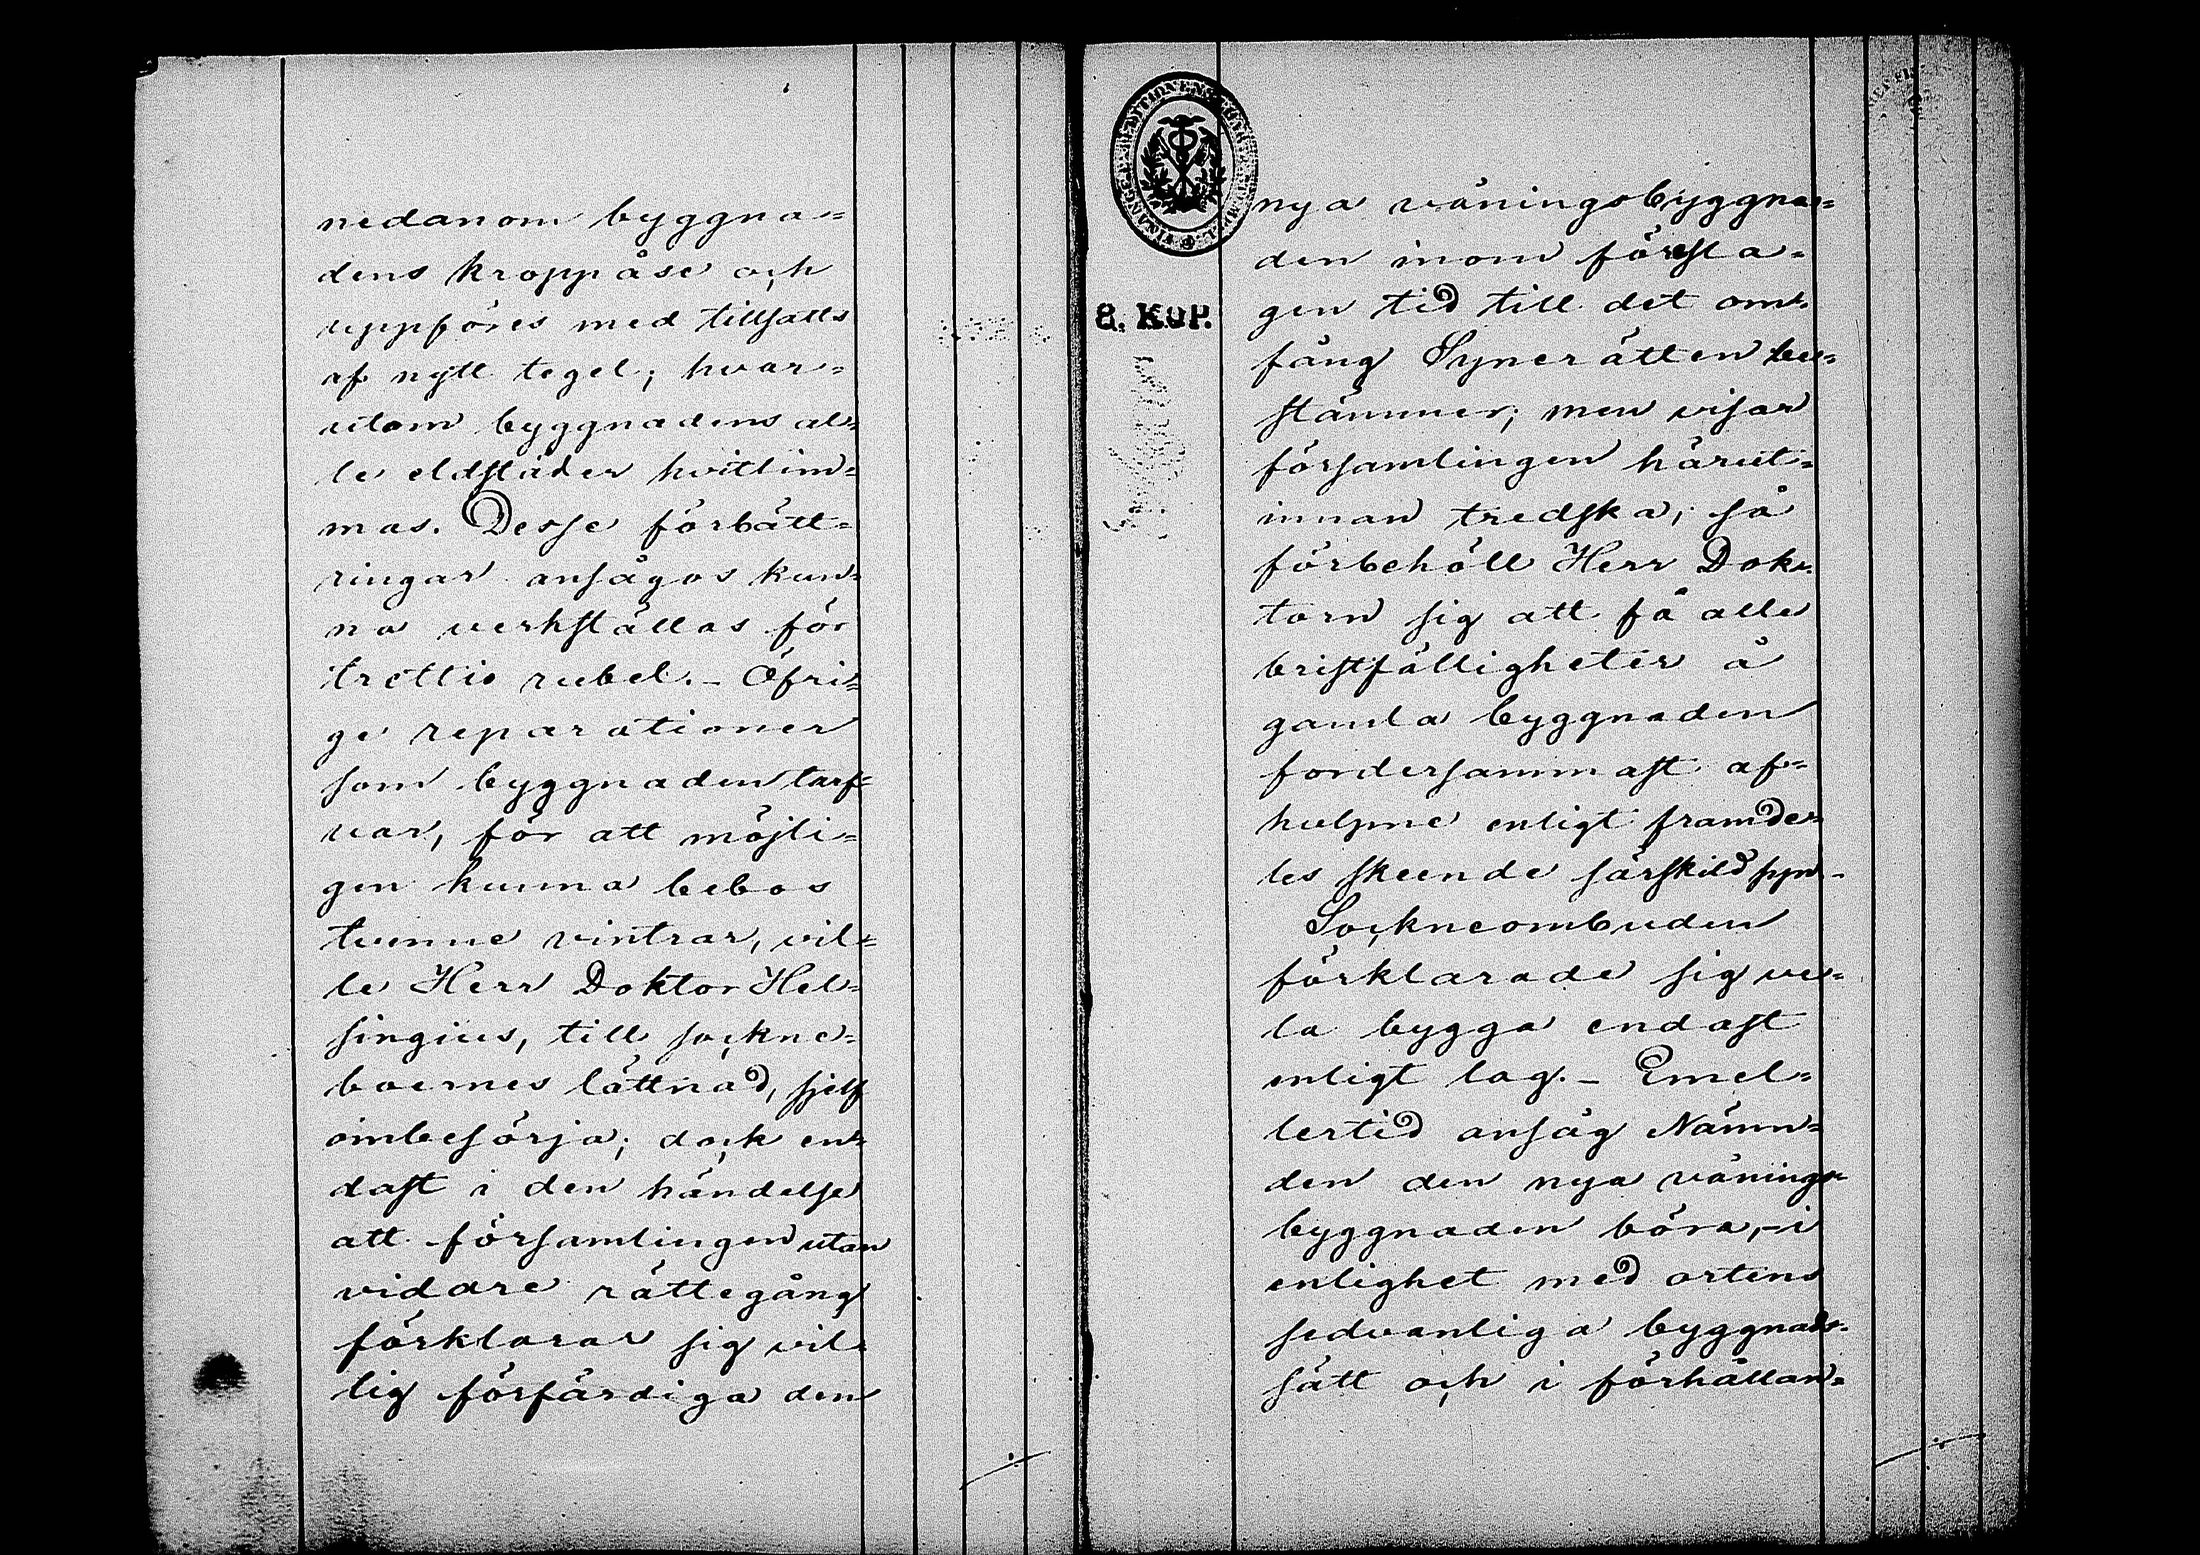 nedanom byggna=
dens kroppåse och
uppföres med tillsatts
af nytt tegel; hvar=
utom byggnadens al=
le eldstäder hvitlim=
mas. Desse förbätt=
ringar ansågos kun=
na verkställas för
trettio rubel. – Öfri=
ge reparationer
som byggnaden tarf=
var, för att möjli=
gen kunna bebos
tvenne vintrar, vil=
le Herr Doktor Hel=
singius, till sockne=
boernes lättnad, sjelf
ombesörja; dock en=
dast i den händelse
att församlingen utan
vidare rättegång
förklarar sig vil=
lig förfärdiga den
8. KOP.
nya våningsbyggna=
den inom föresla=
gen tid till det om=
fång Synerätten be=
stämmer; men visar
församlingen härut=
innan tredska, så
förbehöll Herr Dok=
torn sig att få alla
bristfälligheter å
gamla byggnaden
fordersammast af=
hulpne enligt framde=
les skeende särskild syn. –
Sockneombuden
förklarade sig ve=
la bygga endast
enligt lag. – Emel=
lertid ansåg Nämn=
den den nya vånings=
byggnaden böra, – i
enlighet med ortens
sedvanliga byggnads=
sätt och i förhållan=